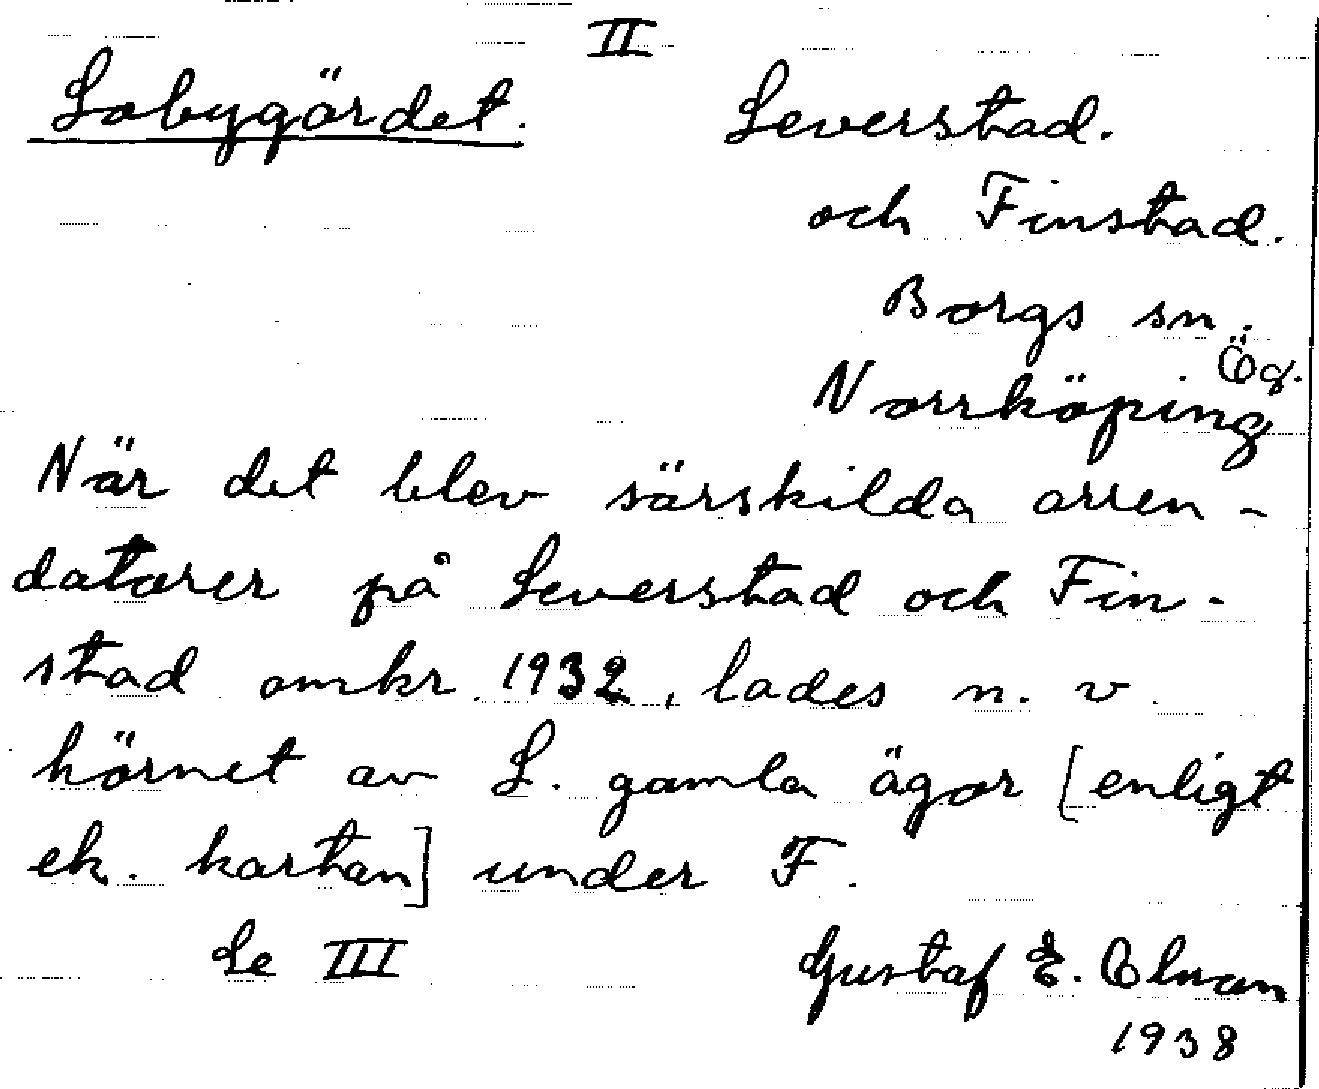 II
Lobygärdet. Leverstad.
och Finstad.
Borgs sn.
Ög.
Norrköping
När det blev särskilda arren-
datorer på Leverstad och Fin-
stad omkr. 1932, lades n. v.
hörnet av L. gamla ägor [enligt
ek. kartan] under F.
Se III Gustaf E.
1938